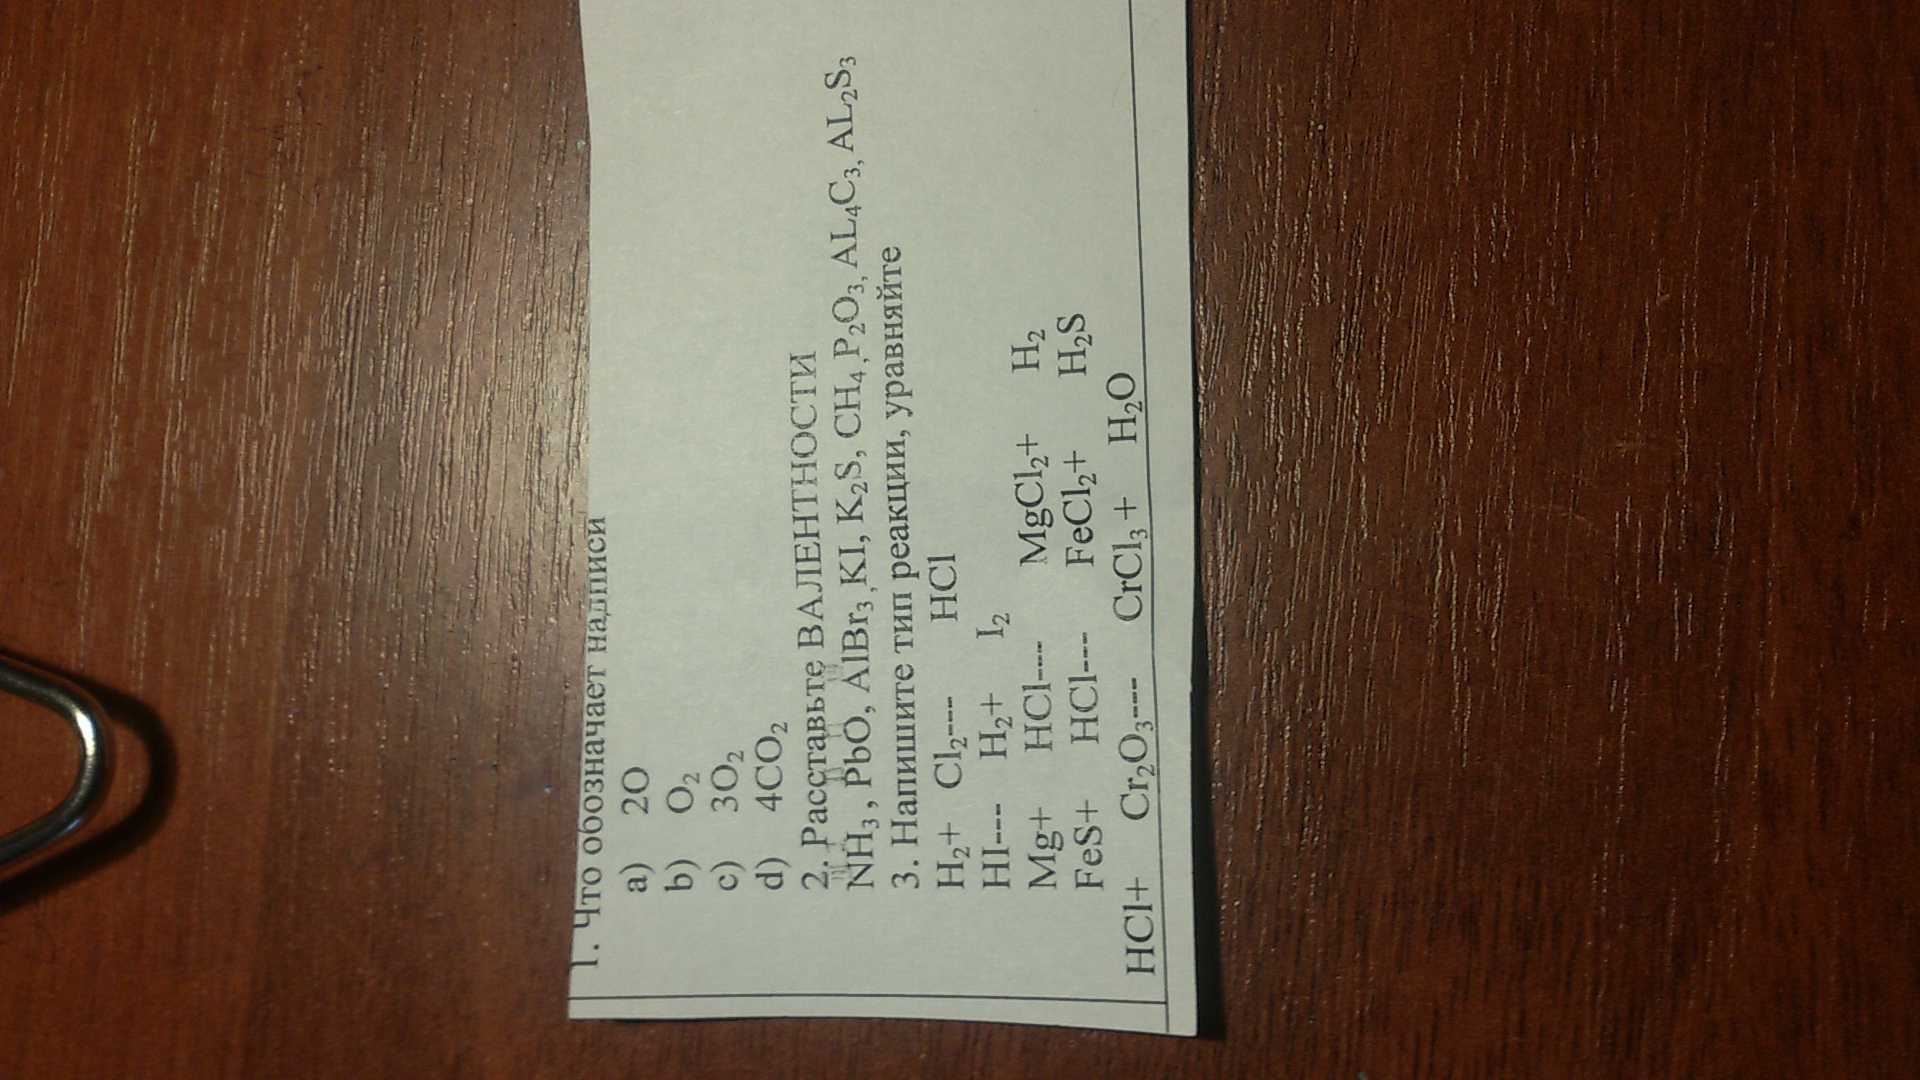 1. Что обозначает надписи
a) 2O
b) O₂
c) 3O₂
d) 4CO₂
2. Расставьте ВАЛЕНТНОСТИ
NH₃, PbO, AlBr₃, KI, K₂S, CH₄, P₂O₃, AL₄C₃, AL₂S₃
3. Напишите тип реакции, уравняйте
H₂+ Cl₂--- HCl
HI--- H₂+ I₂
Mg+ HCl--- MgCl₂+ H₂
FeS+ HCl--- FeCl₂+ H₂S
HCl+ Cr₂O₃--- CrCl₃ + H₂O